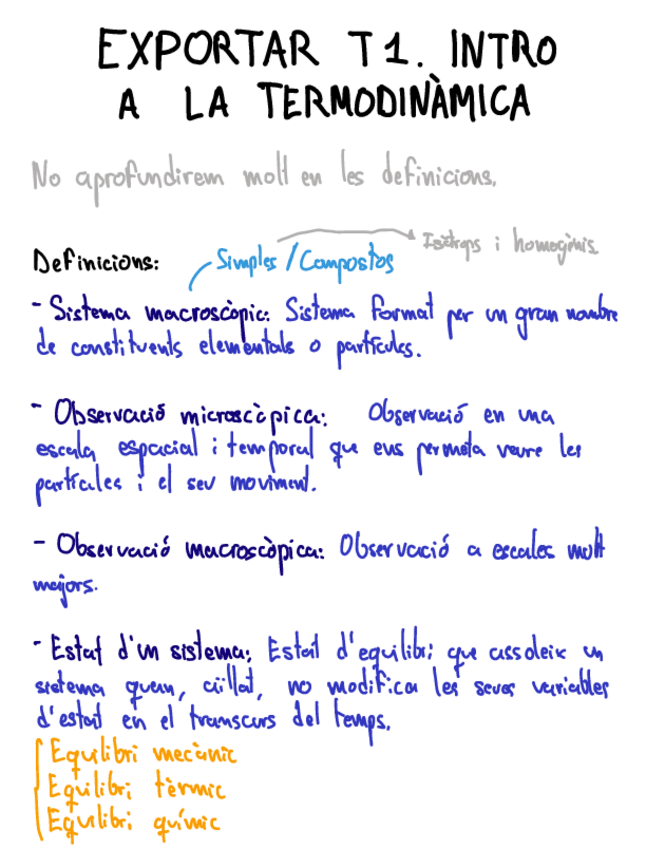 EXPORTAR T1. INTRO
A LA TERMODINÀMICA
No aprofundirem molt en les definicions.
Definicions:
Simples / Compostos
Isòtrops i homogènis
- Sistema macroscòpic: Sistema format per un gran nombre
de constituents elementals o partícules.
- Observació microscòpica: Observació en una
escala espacial i temporal que ens permeta veure les
partícules i el seu moviment.
- Observació macroscòpica: Observació a escales molt
majors.
- Estat d'un sistema: Estat d'equilibri que assoleix un
sistema quan, aïllat, no modifica les seues variables
d'estat en el transcurs del temps.
Equilibri mecànic
Equilibri tèrmic
Equilibri químic